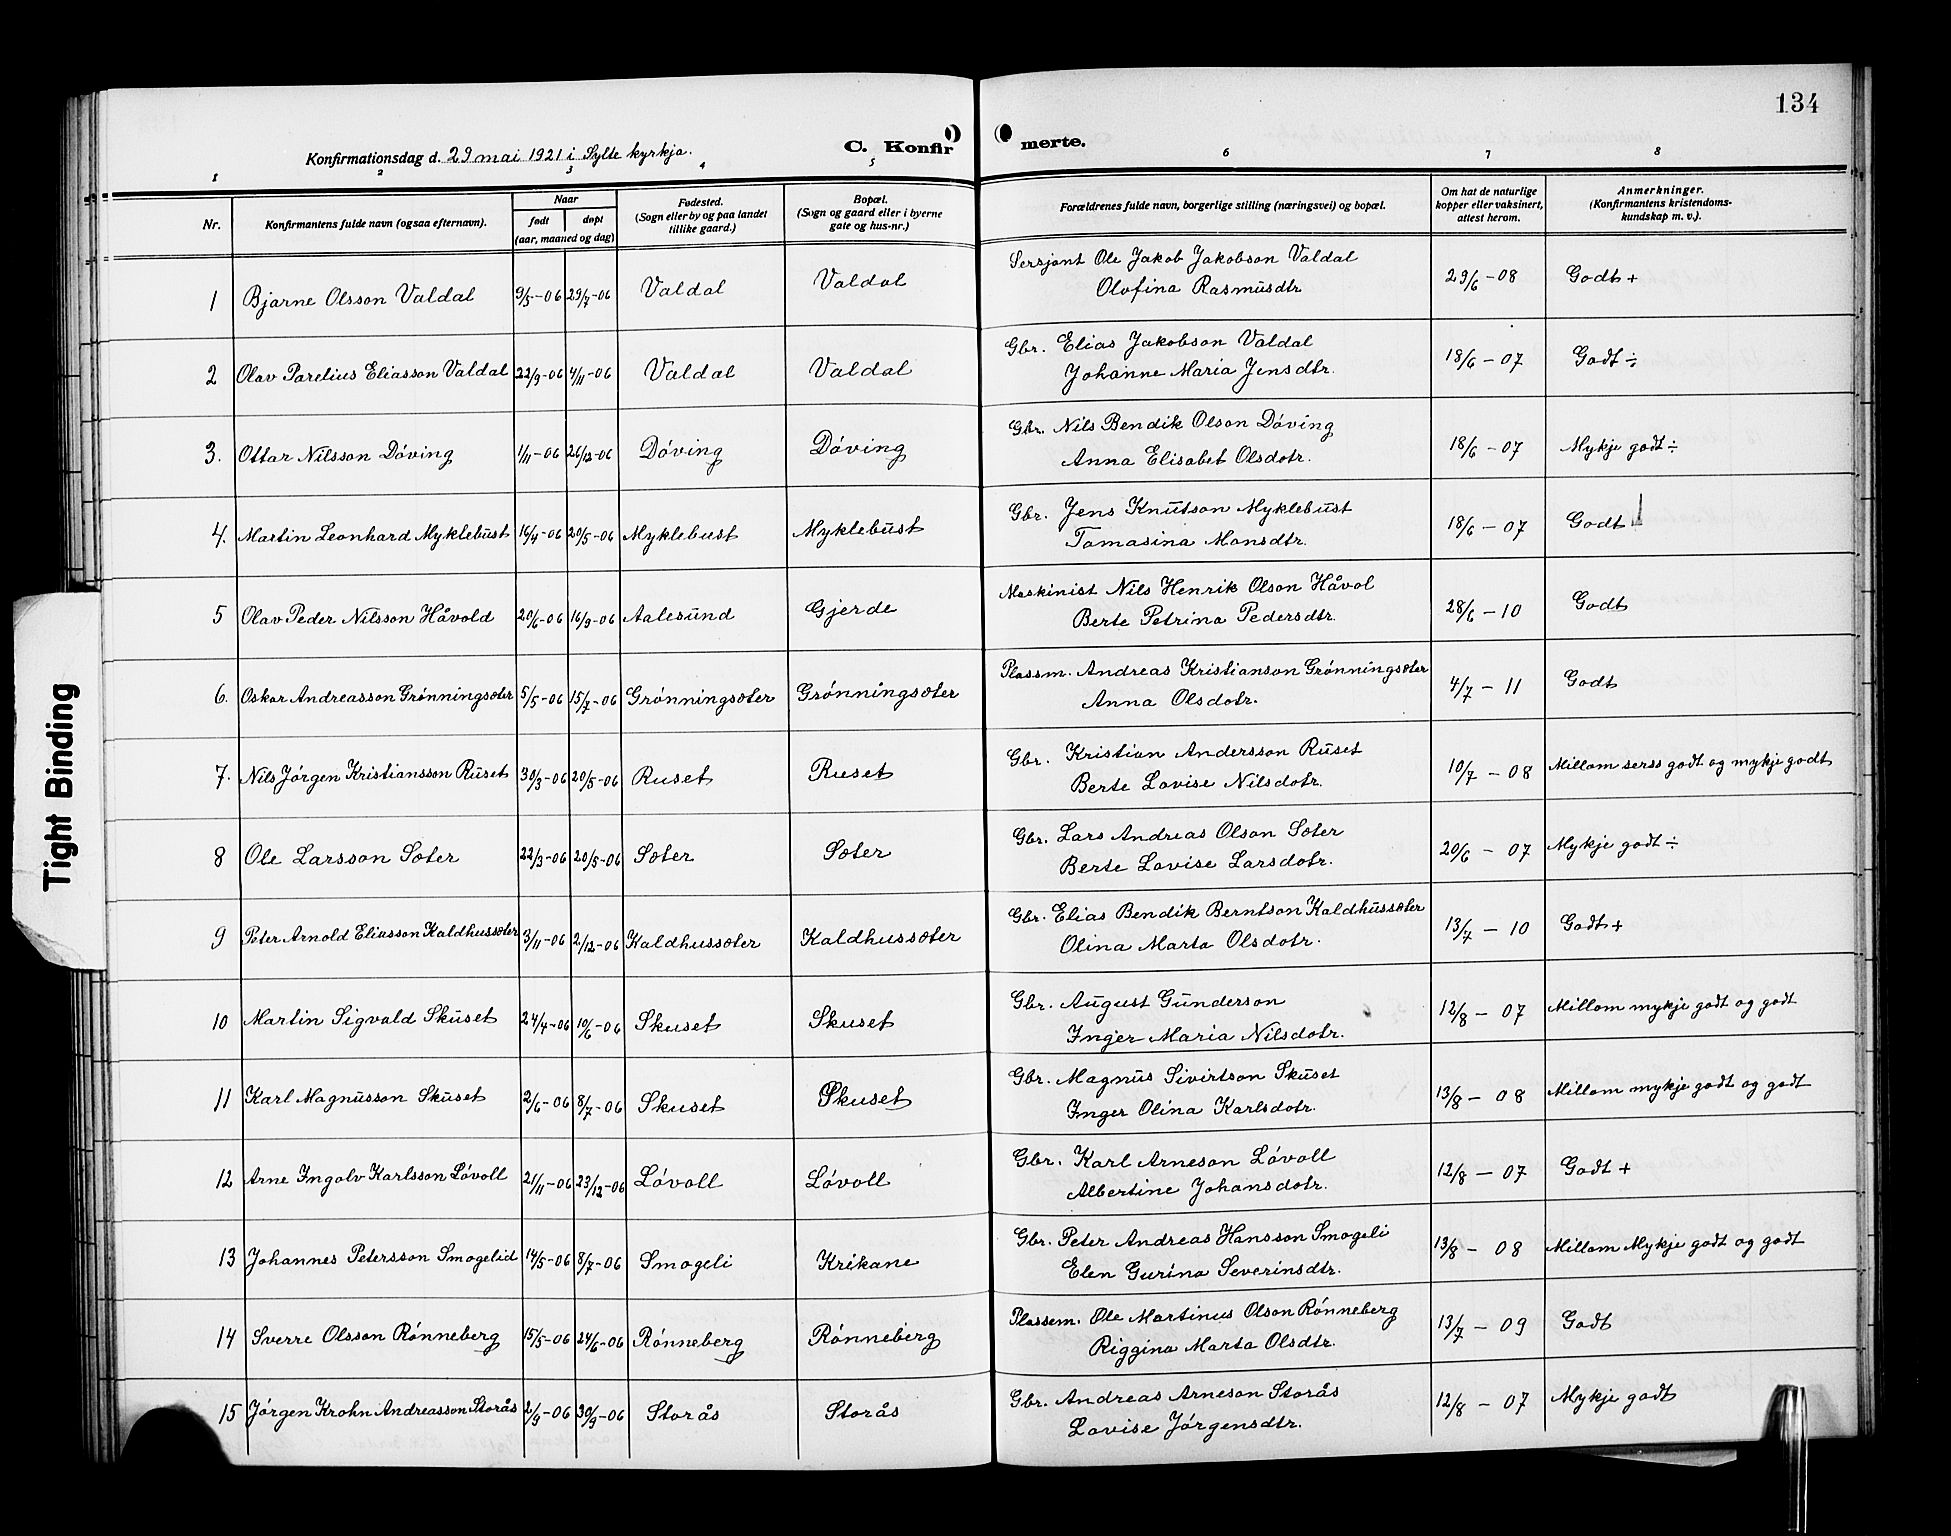 134
Konfirmationsdag d. 29 mai 1921 i Sylte kyrkja.
C. Konfirmerte.
1 2 3 4 5 6 7 8
Nr. Konfirmantens fulde navn (ogsaa efternavn). Naar født døpt (aar, maaned og dag) Fødested. (Sogn eller by og paa landet tillike gaard.) Bopæl. (Sogn og gaard eller i byerne gate og hus-nr.) Forældrenes fulde navn, borgerlige stilling (næringsvei) og bopæl. Om hat de naturlige kopper eller vaksinert, attest herom. Anmerkninger. (Konfirmantens kristendomskundskap m. v.).
1 Bjarne Olsson Valdal 9/5-06 29/7-06 Valdal Valdal Sersjant Ole Jakob Jakobson Valdal 29/6-08 Godt +
Olufina Rasmusdtr
2 Olav Parelius Eliasson Valdal 22/9-06 4/11-06 Valdal Valdal Gbr. Elias Jakobson Valdal 18/6-07 Godt ÷
Johanne Maria Jensdtr.
3. Ottar Nilsson Döving 1/11-06 26/12-06 Döving Döving Gbr. Nils Bendik Olson Döving 18/6-07 Mykje godt ÷
Anna Elisabet Olsdotr.
4. Martin Leonhard Myklebust 16/4-06 20/5-06 Myklebust Myklebust Gbr. Jens Knutson Myklebust 18/6-07 Godt
Tomasina Monsdtr.
5 Olav Peder Nilsson Håvold 20/6-06 16/9-06 Aalesund Gjerde Maskinist Nils Henrik Olson Håvol 28/6-10 Godt
Berte Petrina Pedersdtr.
6. Oskar Andreasson Grönningsæter 5/5-06 15/7-06 Grönningsæter Grönningsæter Plassm. Andreas Kristianson Grönningsæter 4/7-11 Godt
Anna Olsdotr.
7. Nils Jörgen Kristiansson Ruset 30/3-06 20/5-06 Ruset Ruset Gbr. Kristian Andersson Ruset 10/7-08 Millom serss godt og mykje godt
Berte Lovise Nilsdotr.
8 Ole Larsson Sæter 22/3-06 20/5-06 Sæter Sæter Gbr. Lars Andreas Olson Sæter 20/6-07 Mykje godt ÷
Berte Lovise Larsdotr.
9 Peter Arnold Eliasson Kaldhussæter 3/11-06 2/12-06 Kaldhussæter Kaldhussæter Gbr. Elias Bendik Berntson Kaldhussæter 13/7-10 Godt +
Olina Marta Olsdotr.
10 Martin Sigvald Skuset 24/4-06 10/6-06 Skuset Skuset Gbr. August Gunderson 12/8-07 Millom mykje godt og godt
Inger Maria Nilsdotr.
11 Karl Magnusson Skuset 2/6-06 8/7-06 Skuset Skuset Gbr. Magnus Sivirtson Skuset 13/8-08 Millom mykje godt og godt
Inger Olina Karlsdotr.
12 Arne Ingolv Karlsson Lövoll 21/11-06 23/12-06 Lövoll Lövoll Gbr. Karl Arneson Lövoll 12/8-07 Godt +
Albertine Johansdotr.
13 Johannes Petersson Smogelid 14/5-06 8/7-06 Smogeli Krikane Gbr. Peter Andreas Hansson Smogeli 13/8-08 Millom Mykje godt og godt
Elen Gurina Severinsdtr.
14 Sverre Olsson Rönneberg 15/5-06 24/6-06 Rönneberg Rönneberg Plassem. Ole Martinus Olson Rönneberg 13/7-09 Godt
Riggina Marta Olsdtr.
15 Jörgen Krohn Andreasson Storås 2/9-06 30/9-06 Storås Storås Gbr. Andreas Arneson Storås 12/8-07 Mykje godt
Lovise Jörgensdtr.
Tight Binding